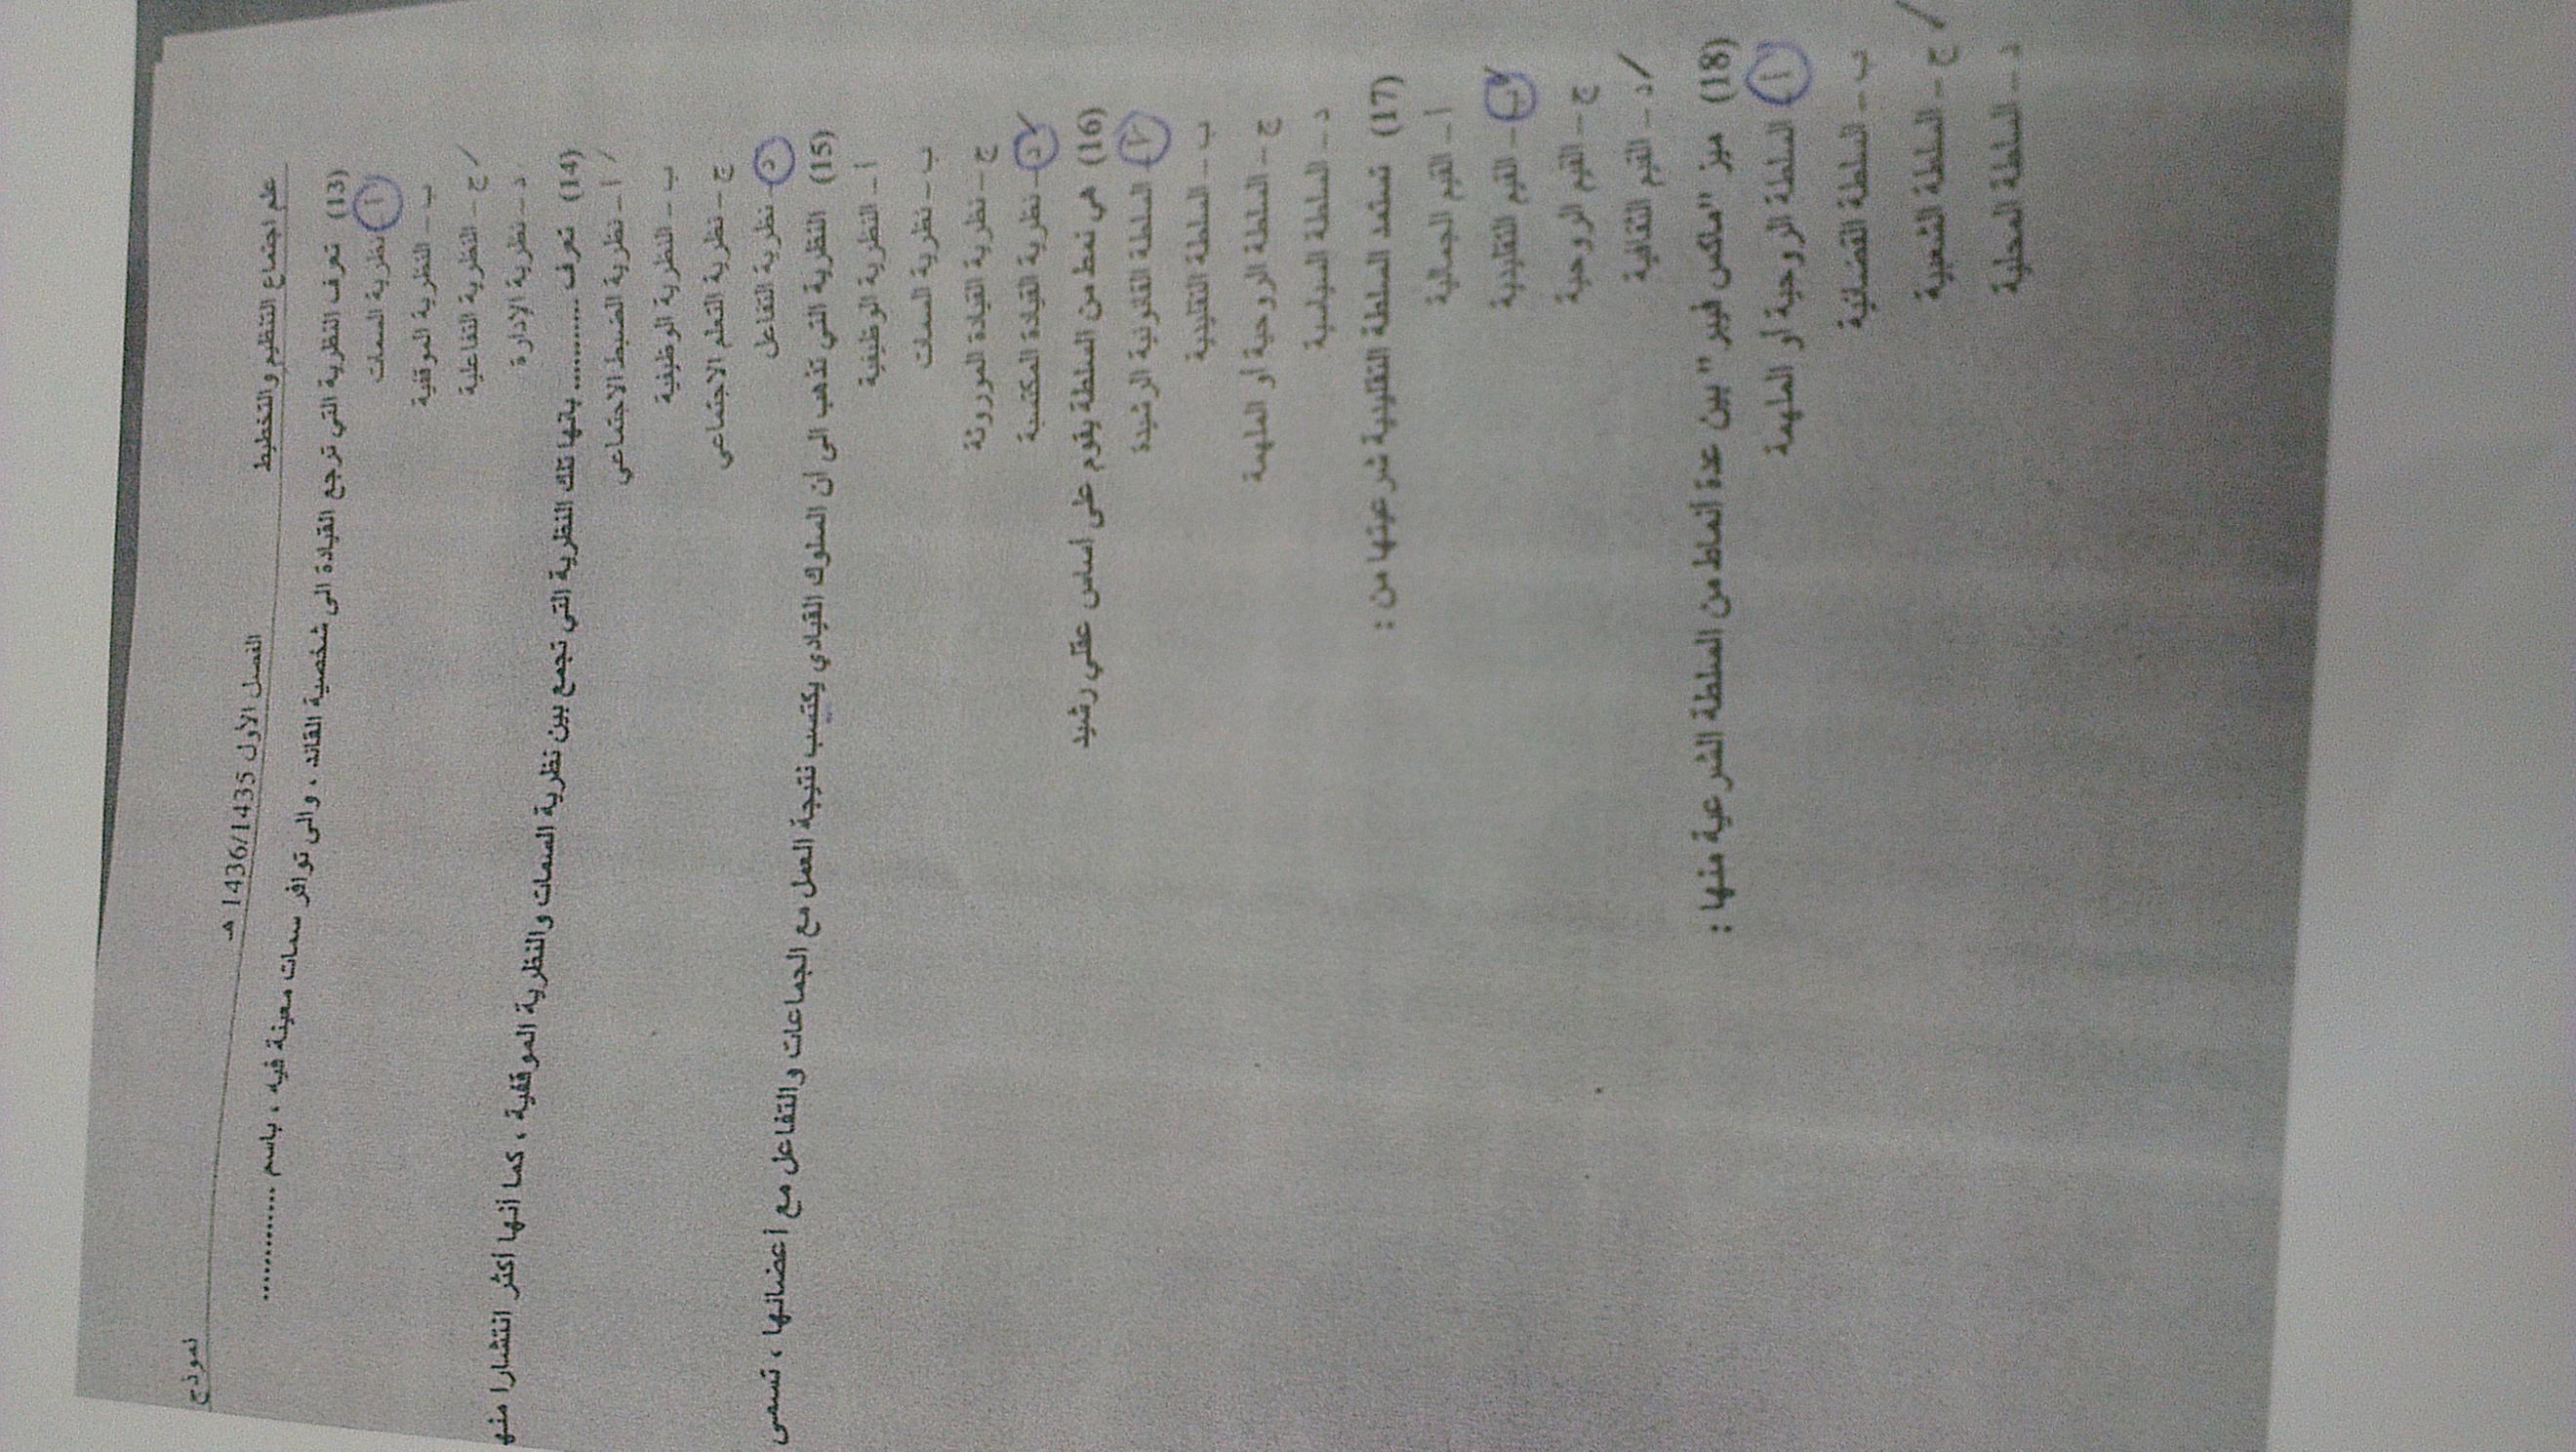 علم اجتماع التنظيم والتخطيط الفصل الأول 1436/1435 هـ نموذج
(13) تعرف النظرية التي ترجع القيادة الى شخصية القائد ، والى توافر سمات معينة فيه ، باسم ............
أ - نظرية السمات
ب - النظرية الموقفية
ج - النظرية التفاعلية
د - نظرية الإدارة
(14) تعرف ............ بانها تلك النظرية التي تجمع بين نظرية السمات والنظرية الموقفية ، كما أنها أكثر انتشارا منها
أ - نظرية الضبط الاجتماعي
ب - النظرية الوظيفية
ج - نظرية التعلم الاجتماعي
د - نظرية التفاعل
(15) النظرية التي تذهب الى ان السلوك القيادي يكتسب نتيجة العمل مع الجماعات والتفاعل مع أعضائها ، تسمى
أ - النظرية الوظيفية
ب - نظرية السمات
ج - نظرية القيادة الموروثة
د - نظرية القيادة المكتسبة
(16) هي نمط من السلطة يقوم على أساس عقلي رشيد
أ - السلطة القانونية الرشيدة
ب - السلطة التقليدية
ج - السلطة الروحية او الملهمة
د - السلطة السياسية
(17) تستمد السلطة التقليدية شرعيتها من :
أ - القيم الجمالية
ب - القيم التقليدية
ج - القيم الروحية
د - القيم الثقافية
(18) ميز "ماكس فيبر" بين عدة أنماط من السلطة الشرعية منها :
أ السلطة الروحية أو الملهمة
ب - السلطة القضائية
ج - السلطة الشعبية
د - السلطة المحلية